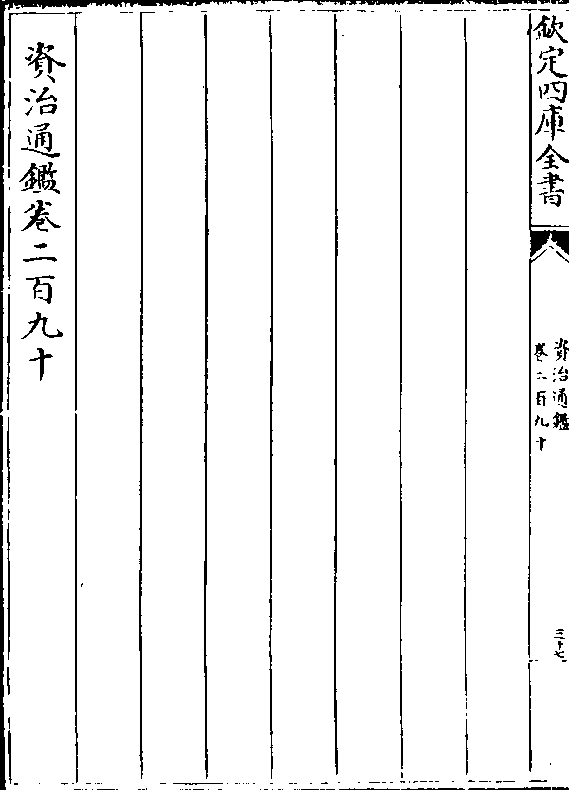 欽定四庫全書
資治通鑑
卷二百九十
三十七
資治通鑑卷二百九十